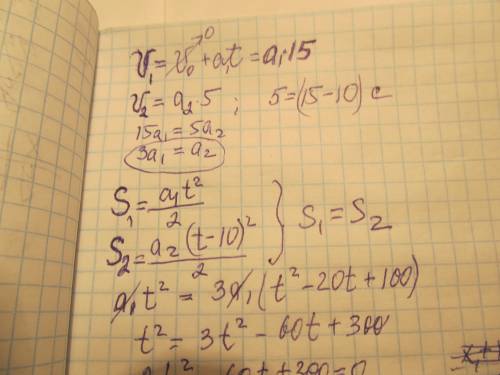 V₁ = V₀→0 + a₁t = a₁·15
V₂ = a₂·5 ; 5 = (15 − 10) c
15a₁ = 5a₂
3a₁ = a₂
S₁ = a₁t²/2
S₂ = a₂(t−10)²/2 } S₁ = S₂
a₁t² = 3a₁(t² − 20t + 100)
t² = 3t² − 60t + 300